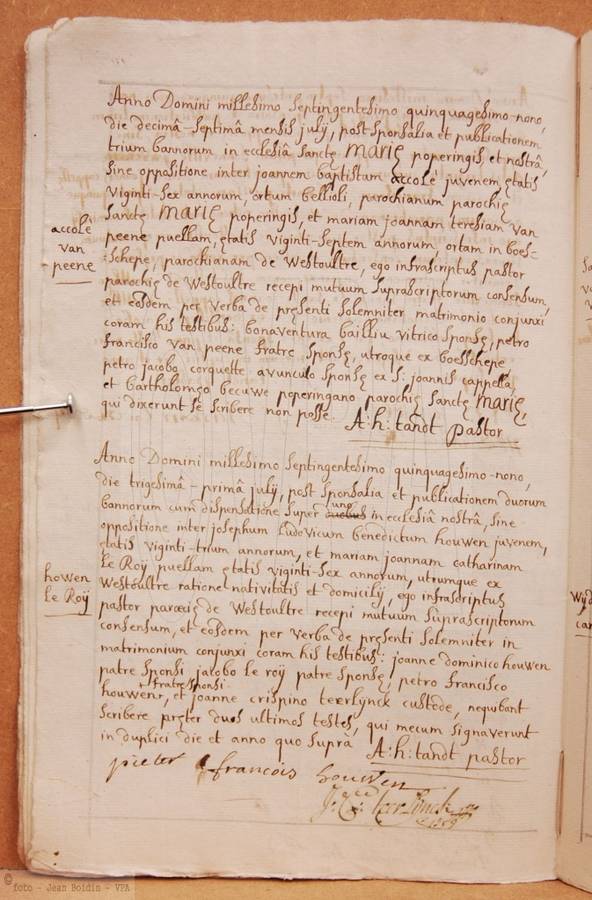 Anno Domini millesimo septingentesimo quinquagesimo-nono,
die decimâ-septimâ mensis julij, post sponsalia et publicationem
trium bannorum in ecclesiâ sanctę Marię poperingis et nostrâ,
sine oppositione inter joannem baptistam accole juvenem ętatis
viginti-sex annorum, ortum bellioli, parochianum parochię
sanctę Marię poperingis, et mariam joannam teresiam van
peene puellam, ętatis viginti-septem annorum, ortam in boes=
:schepe, parochianam de Westoultre, ego infrascriptus pastor
parochię de Westoultre recepi mutuum suprascriptorum consensum,
et eosdem per verba de pręsenti solemniter matrimonio conjunxi
coram his testibus: bonaventura bailliu vitrico sponsę, petro
francisco van peene fratre sponsę, utroque ex boesschepe
petro jacobo corquette avunculo sponsę ex S: joannis cappella,
et bartholomęo becuwe poperingano parochię sanctę Marię,
qui dixerunt se scribere non posse. A:h: tandt pastor
accolé
van
peene
Anno Domini millesimo septingentesimo quinquagesimo-nono,
die trigesimâ-primâ julij, post sponsalia et publicationem duorum
bannorum cum dispensatione super duobus uno in ecclesiâ nostrâ, sine
oppositione inter josephum Ludovicum benedictum houwen juvenem,
ętatis viginti-trium annorum, et mariam joannam catharinam
Le Roÿ puellam ętatis viginti-sex annorum, utrumque ex
Westoultre ratione nativitatis et domicilij, ego infrascriptus
pastor parœcię de Westoultre recepi mutuum suprascriptorum
consensum, et eosdem per verba de pręsenti solemniter in
matrimonium conjunxi coram his testibus: joanne dominico houwen
patre sponsi jacobo le roÿ patre sponsę, petro francisco
houwen + fratre sponsi, et joanne crispino teerlynck custode, nequibant
scribere pręter duos ultimos testes, qui mecum signaverunt
in duplici die et anno quo suprà A:h: tandt pastor
howen
Le Roÿ
pieter francois houwen
teerlynck
© foto - Jean Boidin - VPA